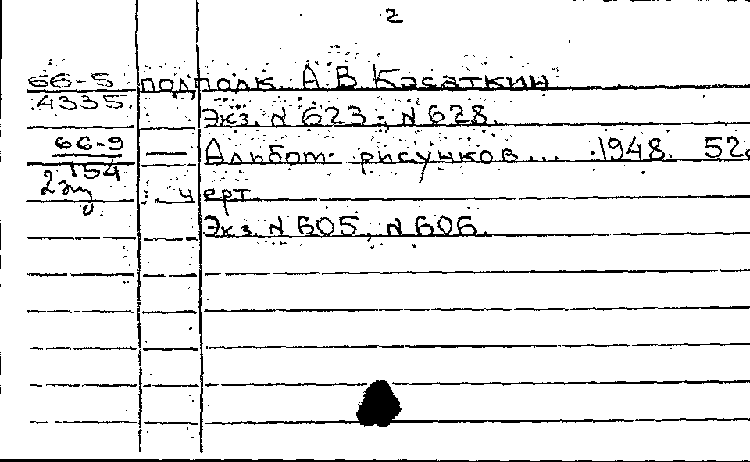 2
66-5 подполк. А.В. Касаткин
4335
Экз. N 623; N 628.
66-9 — Альбом рисунков... 1948. 52с
154
2 экз : черт.
Экз. N 605, N 606.